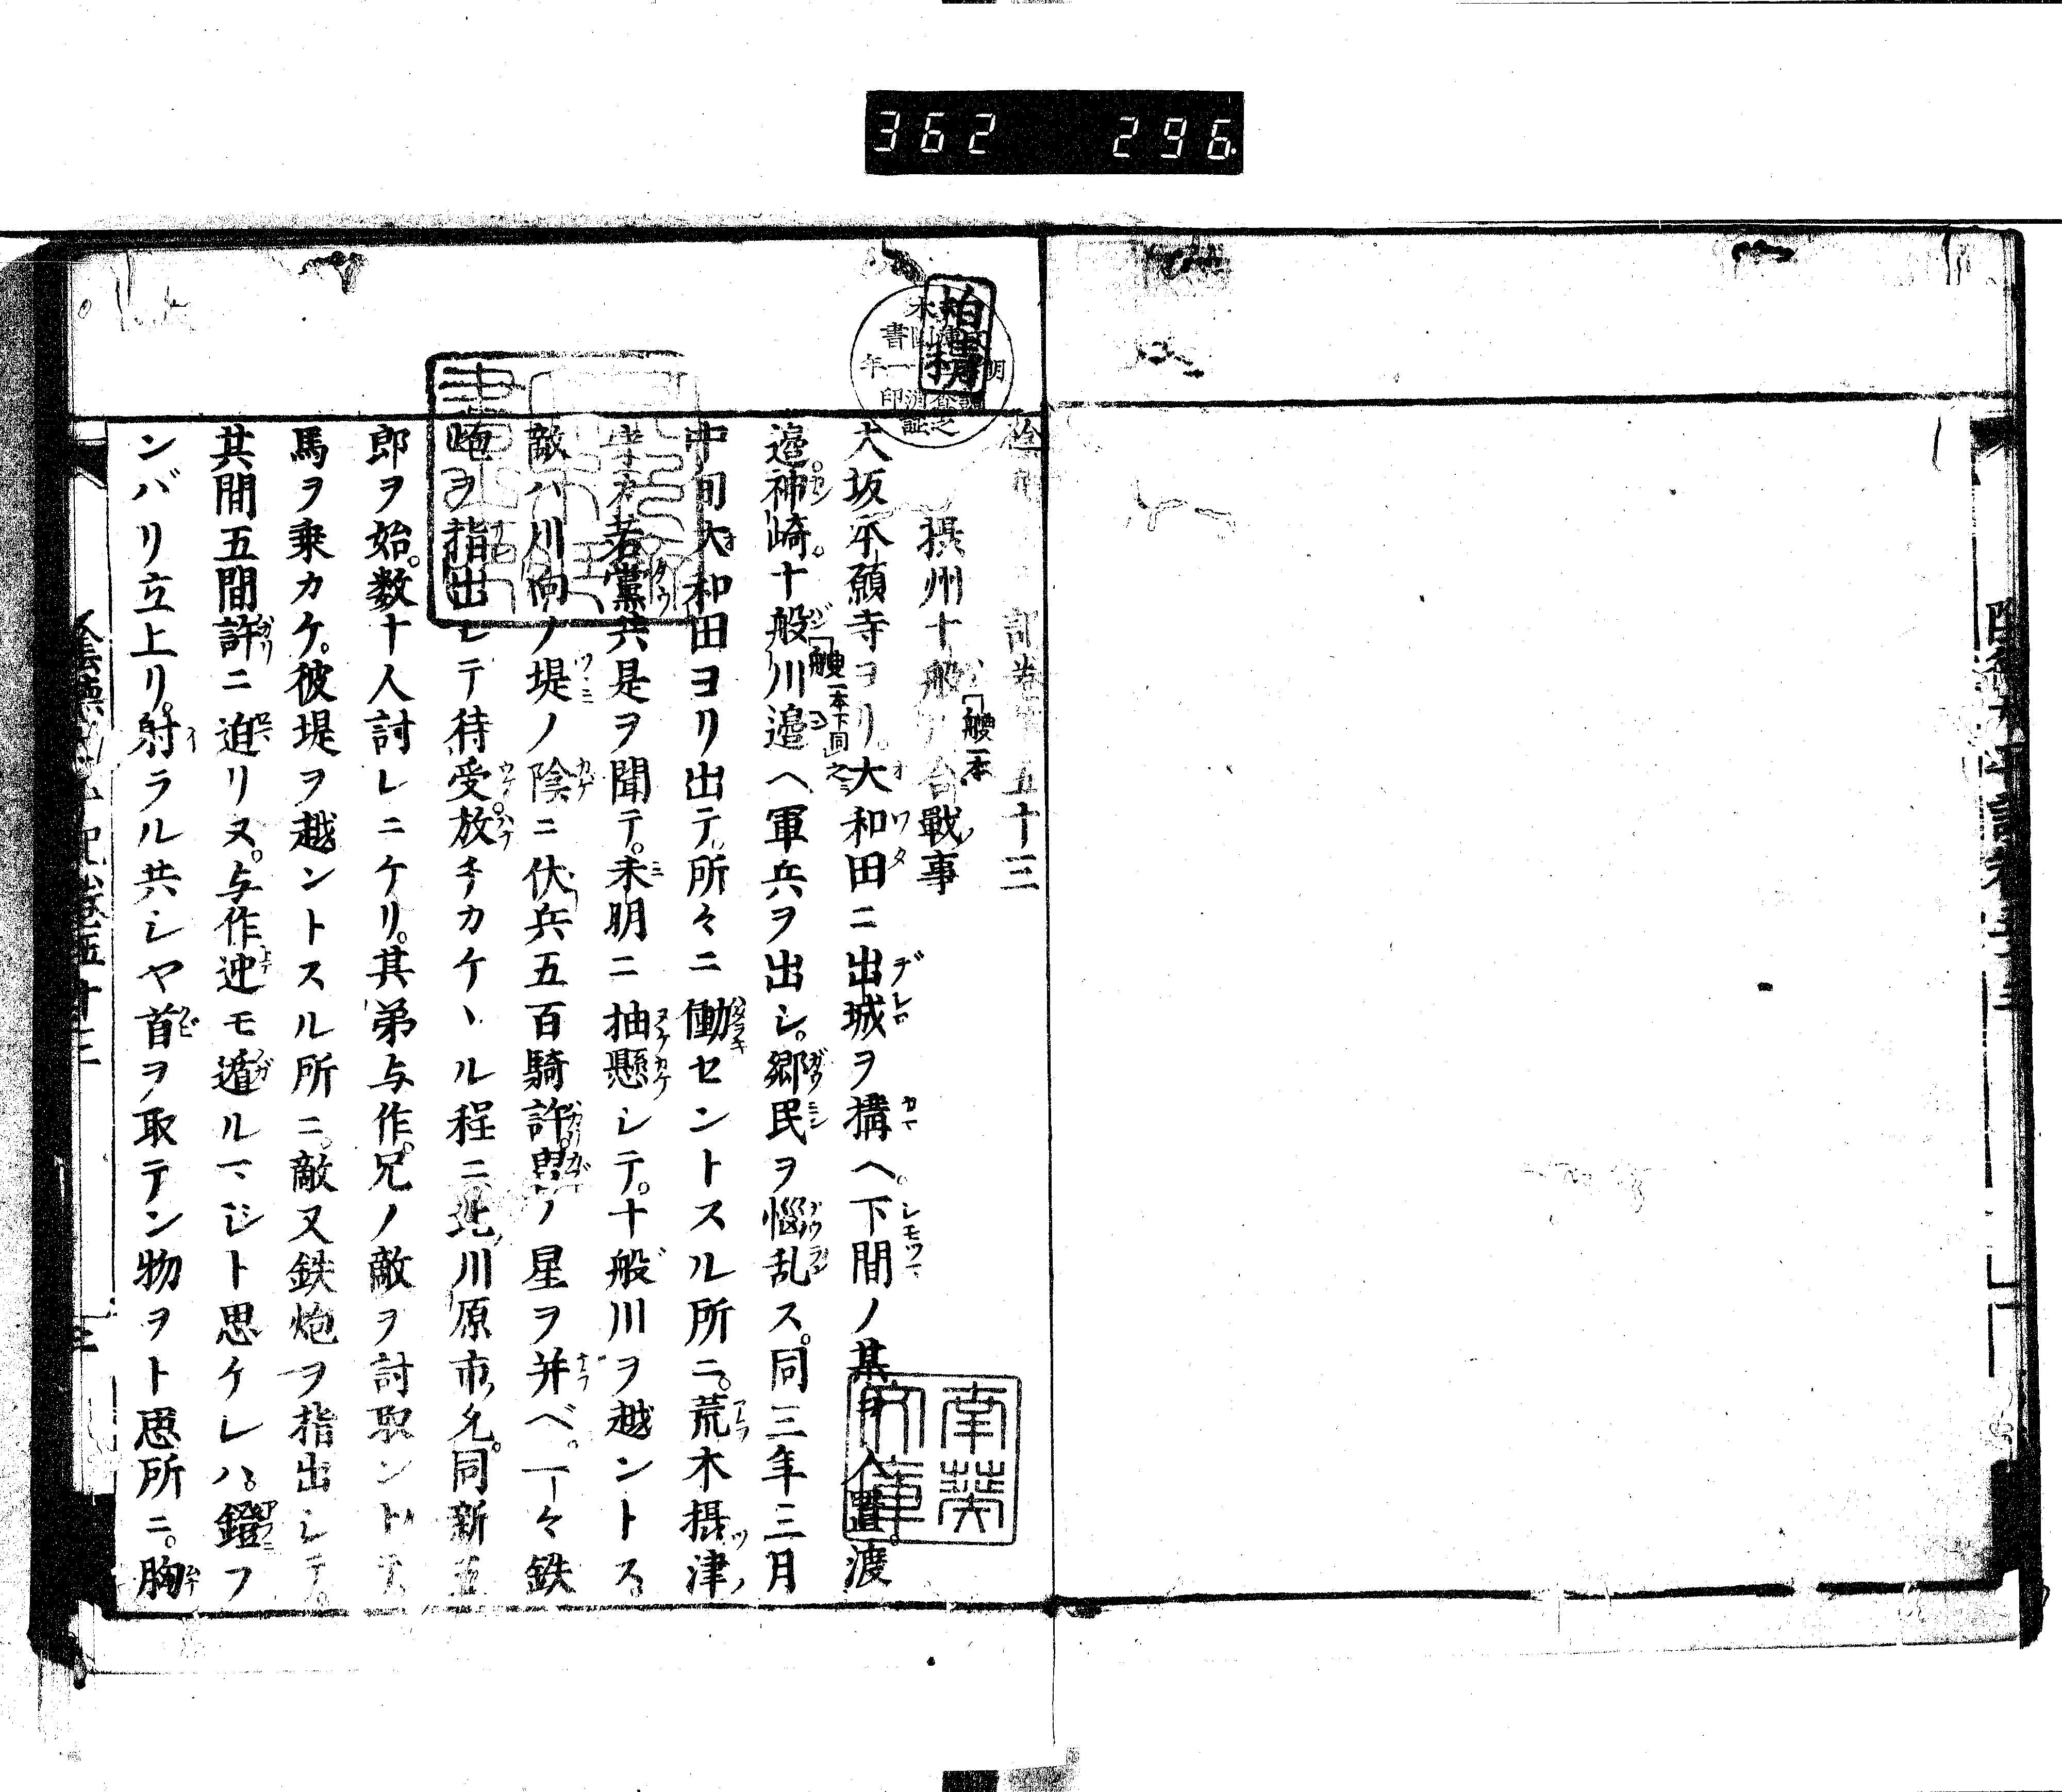 362 296
五十三
摂州十般合戰事
大坂本願寺ヨリ。大和田ニ出城ヲ構ヘ。下間ノ某ヲ入置。渡
邉神崎。十般川邉ヘ軍兵ヲ出シ。郷民ヲ惱乱ス。同三年三月
中旬大和田ヨリ出テ。所々ニ働セントスル所ニ。荒木摂津
守カ若黨共是ヲ聞テ。未明ニ抽懸シテ。十般川ヲ越ントス。
敵ハ川向ノ堤ノ陰ニ伏兵五百騎許。ノ星ヲ并ベ。一々鉄
炮ヲ指出シテ待受放チカケヽル程ニ北川原市允。同新五
郎ヲ始。数十人討レニケリ。其弟与作。兄ノ敵ヲ討取ントテ。
馬ヲ乗カケ。彼堤ヲ越ントスル所ニ。敵又鉄炮ヲ指出シテ。
其間五間許ニ迫リヌ。与作迚モ遁ルマジト思ケレハ。鐙フ
ンバリ立上リ。射ラル共シヤ首ヲ取テン物ヲト思所ニ。胸